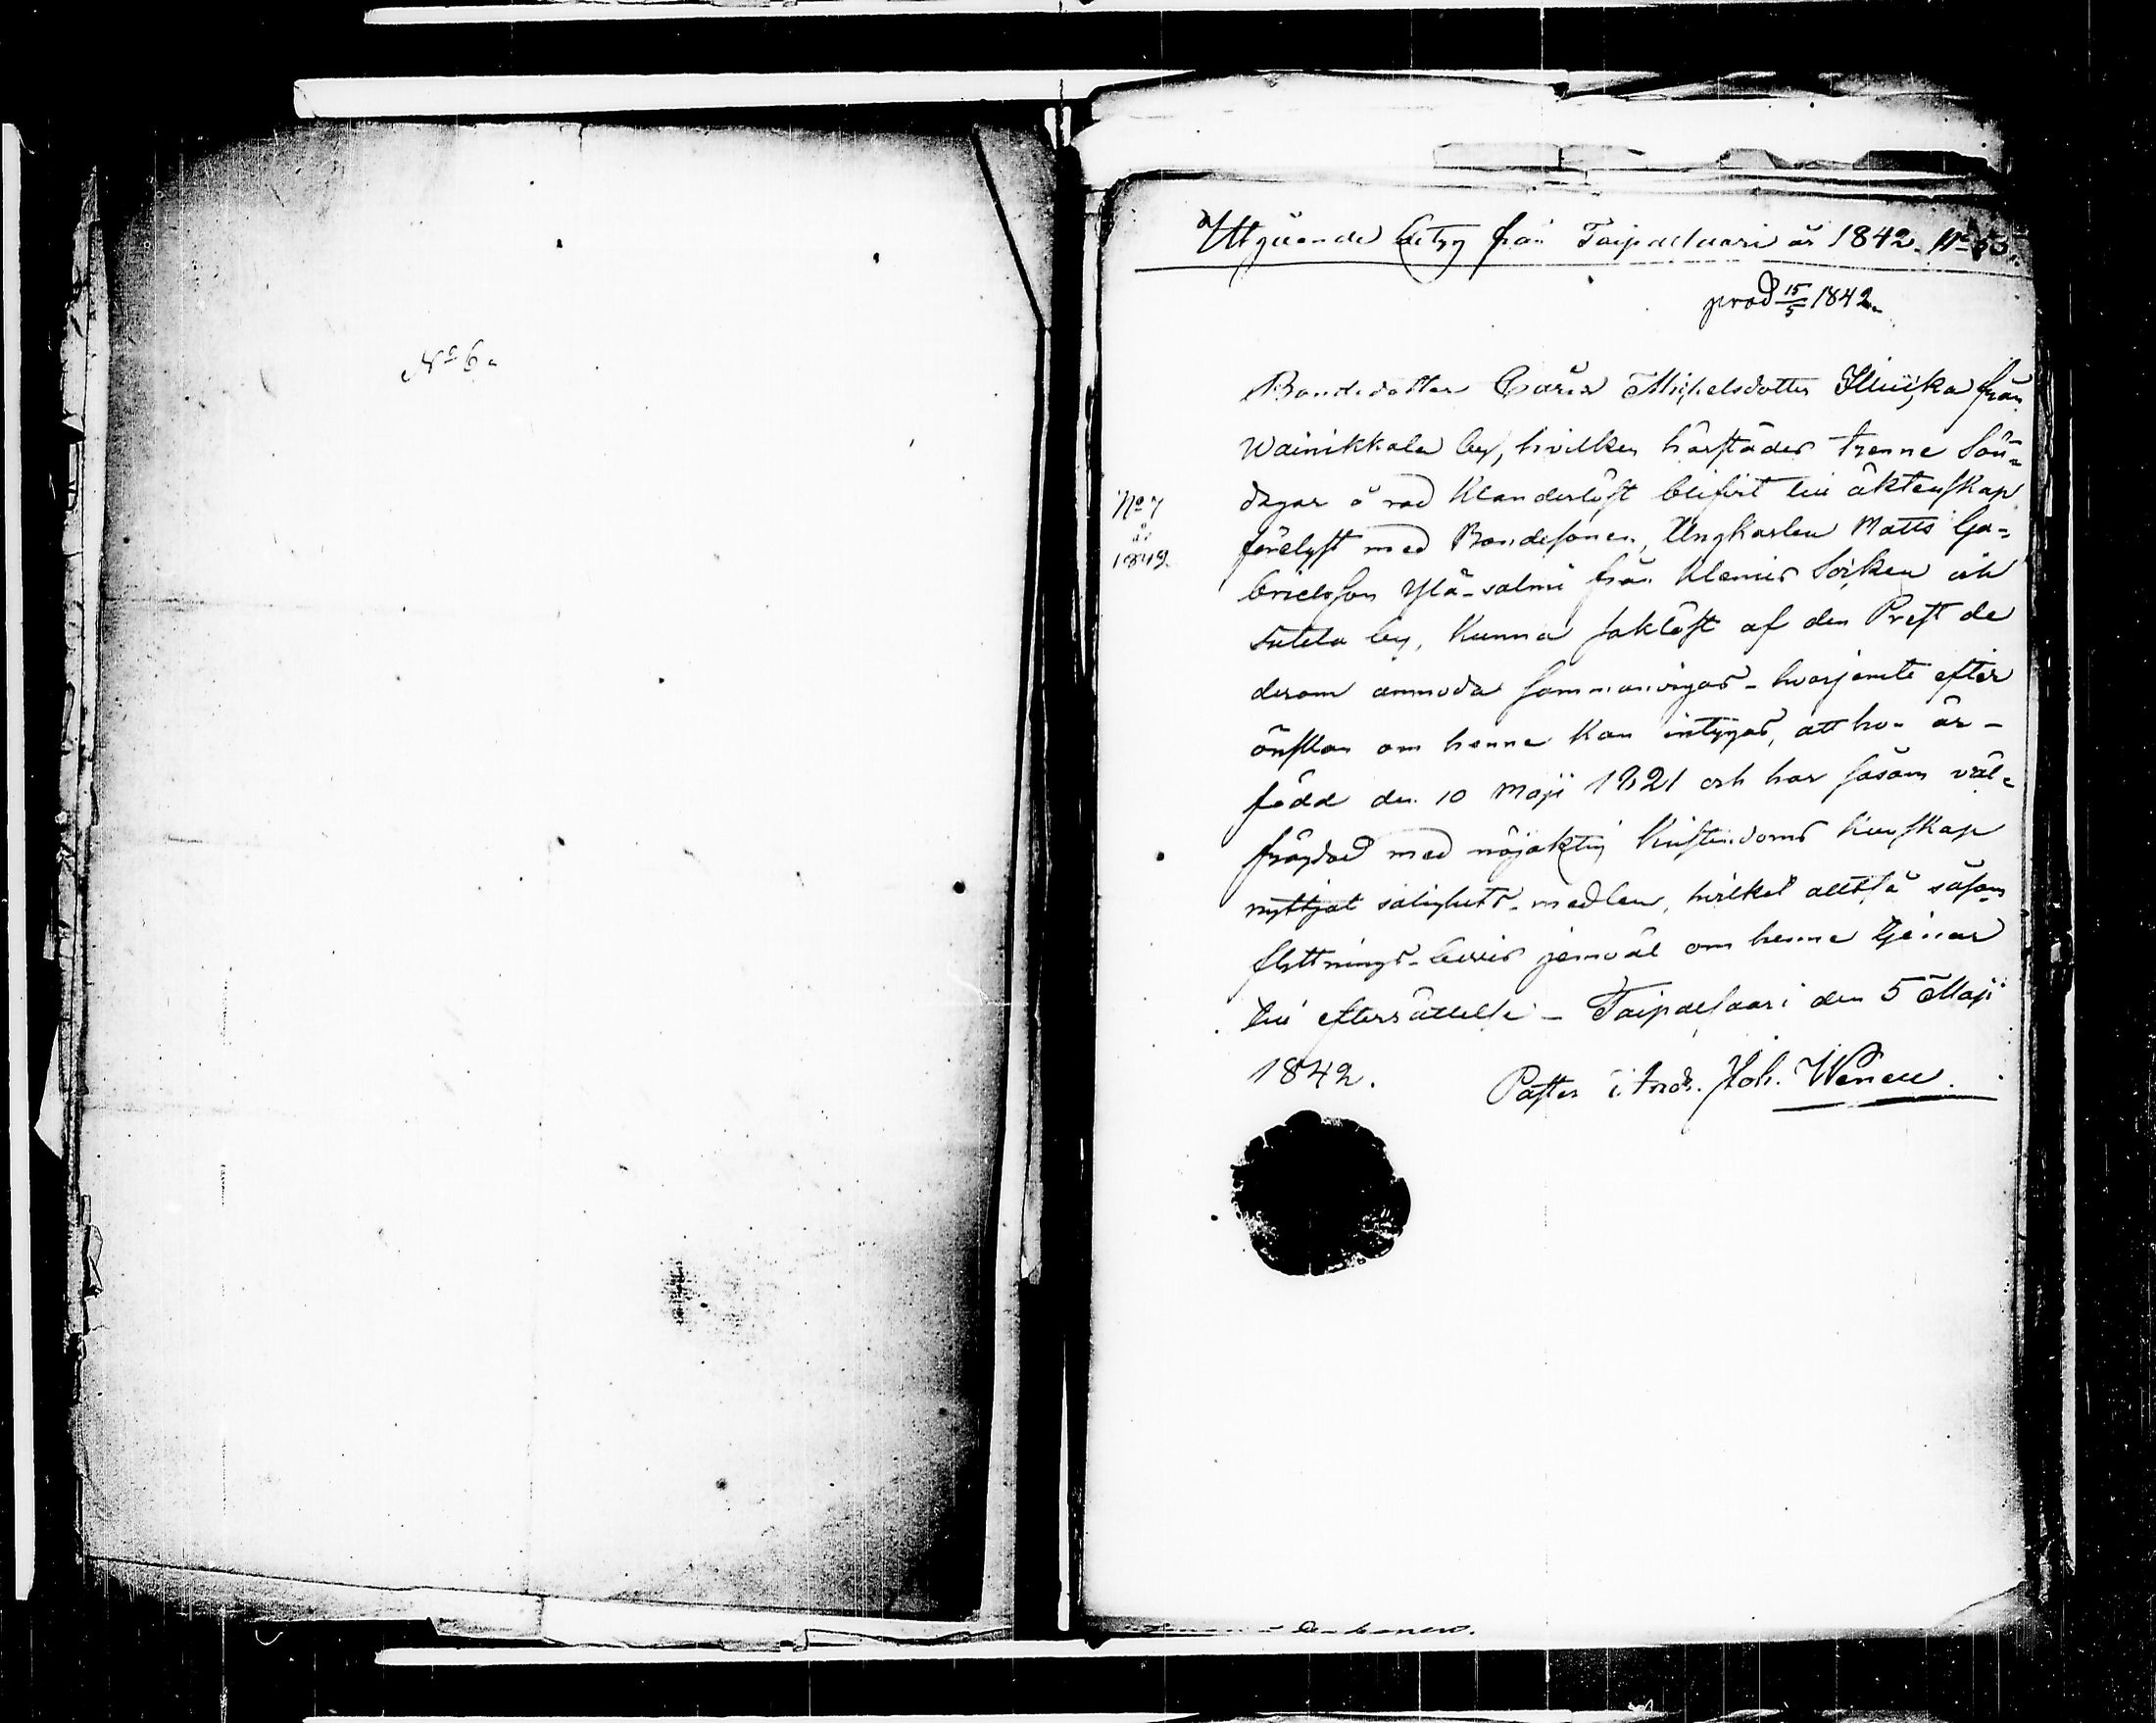 No 6.
Utgående betyg från Taipalsaari år 1842. No 50.
prod 15/5 1842.
Bondedotter Carin Michelsdotter Ilmiska från
Wainikkala by, hvilken härstädes trenne Sön-
dagar å rad klanderlöst blifvit till äktenskap
No 7
år
1842.
förelyst med Bondesonen, Ungkarlen Matts Ga-
brielsson Ylä-salmi från Klemis Socken och
Sutela by, kunna saklöst af den Prest de
derom anmoda sammanvigas - hvarjemte efter
önskan om henne kan intygas, att hon är -
född den 10 Maji 1821 och har såsom väl-
frägdad med nöjaktig kristendoms kunskap
nyttjat salighets-medlen, hvilket alltså såsom
flyttnings-bevis jemväl om henne tjenar
till efterrättelse - Taipalsaari den 5 Maji
1842.
Pastor i Förs. Joh. Wenell.